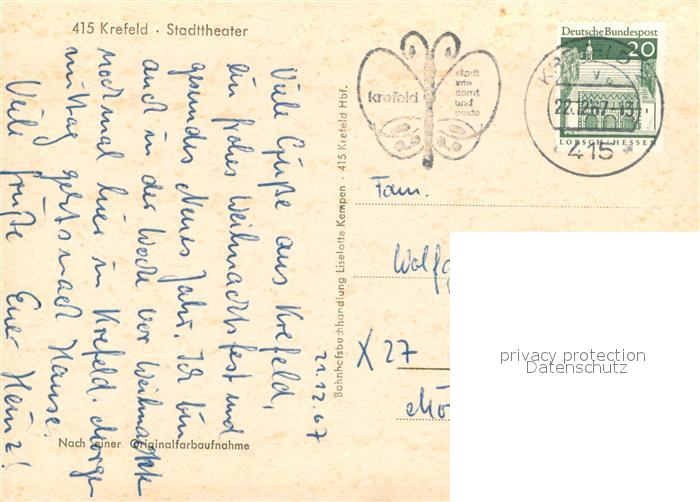 415 Krefeld · Stadttheater
Viele Grüße aus Krefeld,
ein frohes Weihnachtsfest und
gesundes Neues Jahr. Ich bin
auch in der Woche vor Weihnachten
nochmal hier in Krefeld. Morgen
mittag gehts nach Hause.
Viele Grüße Euer Heinz!
21.12.67
Nach einer Originalfarbaufnahme
Bahnhofsbuchhandlung Liselotte Kempen · 415 Krefeld Hbf.
krefeld
stadt
wie
samt
und
seide
Deutsche Bundespost
20
LORSCH/HESSEN
KREFELD
22.12.67
415
Fam.
Wolfg
X 27
privacy protection
Datenschutz